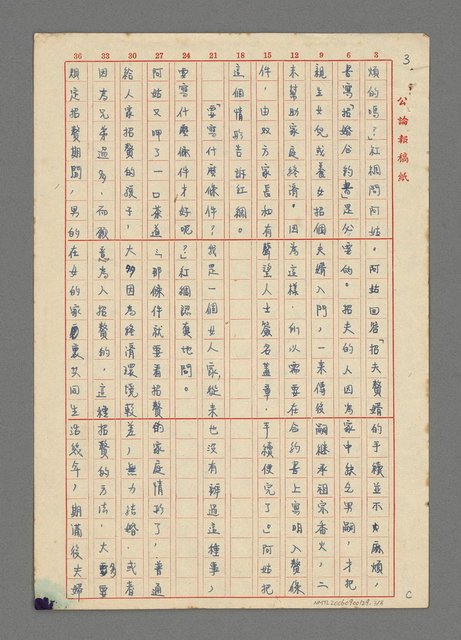 3
公論報稿紙
36 33 30 27 24 21 18 15 12 9 6 3
煩的嗎?」紅綢問阿姑。阿姑回答「招夫贅婿的手續並不太麻煩,
書寫「招婚合約書」是必要的。招夫的人因為家中缺乏男嗣,才把
親生女兒或養女招個夫婿入門,一來傳後嗣繼承祖宗香火,二
來幫助家庭經濟。因為這樣,所以需要在合約書上寫明入贅條
件,由双方家長和有聲望人士簽名蓋章,手續便完了。」阿姑把
這個情形告訴紅綢。
「要寫什麼條件?我是一個女人家,從來也沒有辦過這種事,
要寫什麼條件才好呢?」紅綢認真地問。
阿姑又呷了一口茶道:「那條件就要看招贅的家庭情形了,普通
給人家招贅的孩子,大多因為經濟環境較差,無力結婚,或者
因為兄弟過多,而願意為人招贅的,這種招贅的方法,大多
須定招贅期間,男的在女的家裏共同生活幾年,期滿後夫婦